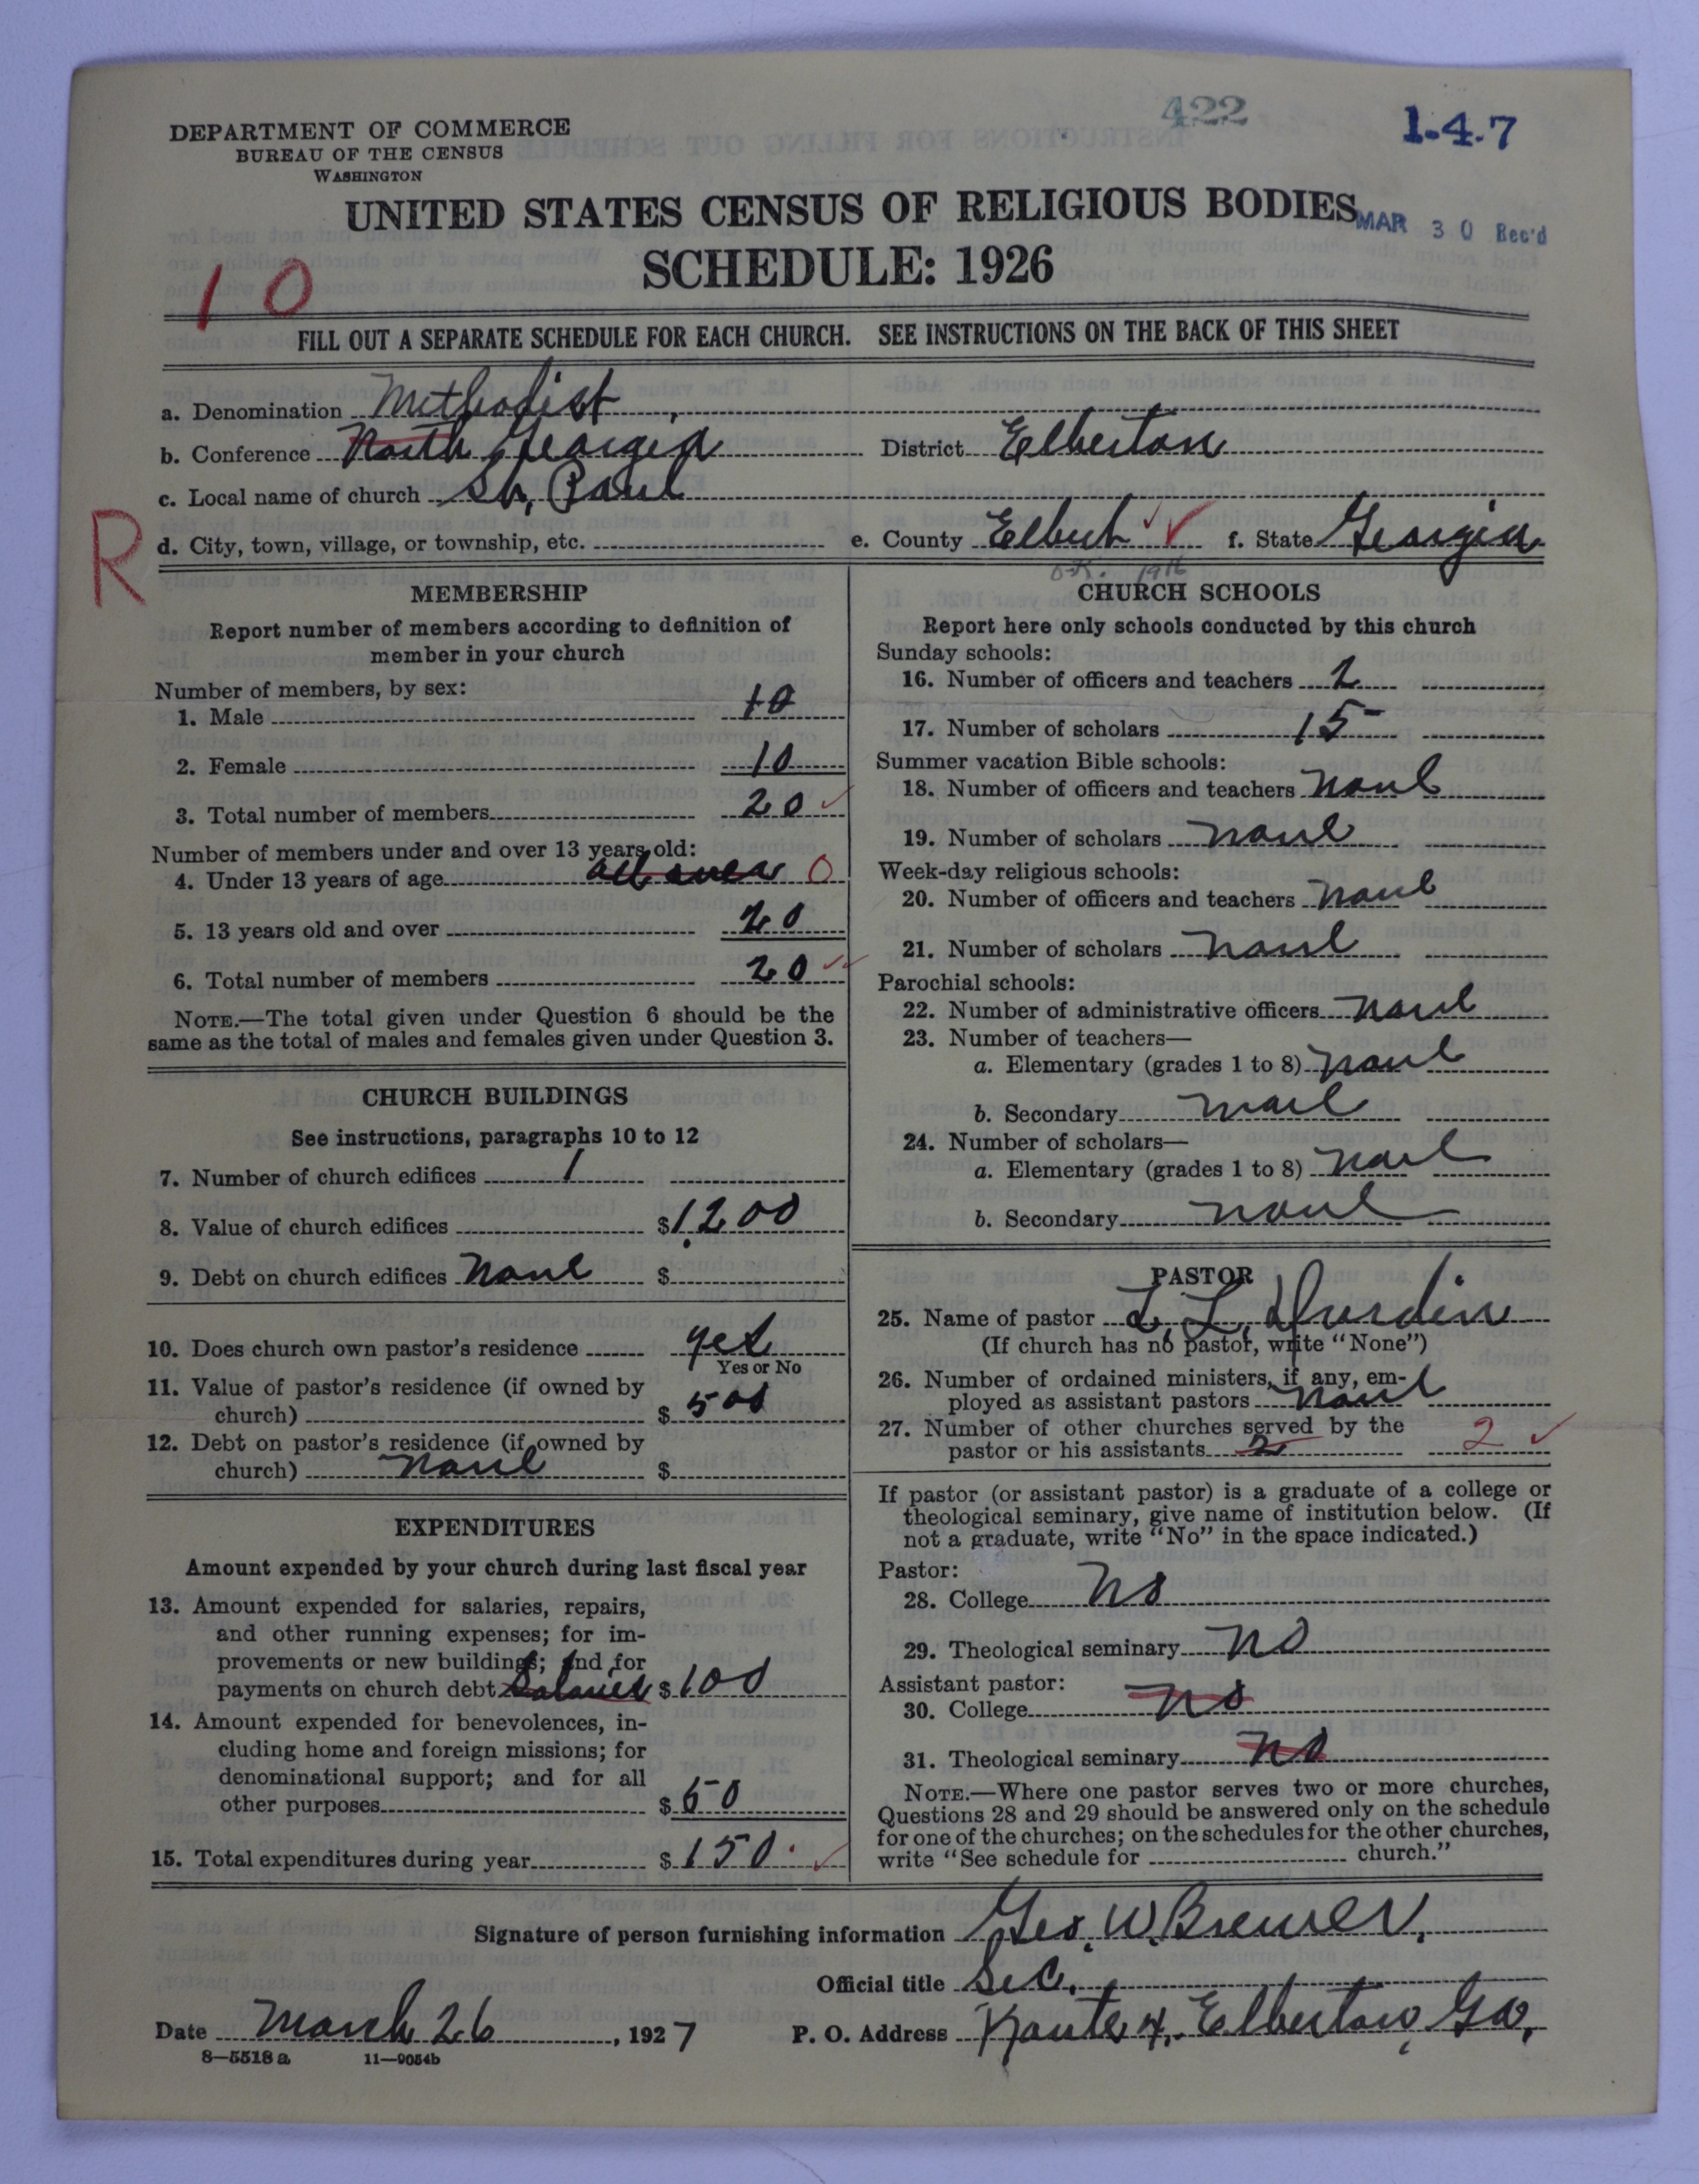 422
1-4-7
DEPARTMENT OF COMMERCE
BUREAU OF THE CENSUS
WASHINGTON
UNITED STATES CENSUS OF RELIGIOUS BODIES
MAR 30 Rec'd
SCHEDULE: 1926
10
FILL OUT A SEPARATE SCHEDULE FOR EACH CHURCH. SEE INSTRUCTIONS ON THE BACK OF THIS SHEET
a. Denomination Methodist
b. Conference North Georgia District Elberton
c. Local name of church St, Paul
R
d. City, town, village, or township, etc. e. County Elbert f. State Georgia
O.K. 1916
MEMBERSHIP
Report number of members according to definition of
member in your church
Number of members, by sex:
1. Male 10
2. Female 10
3. Total number of members 20
Number of members under and over 13 years old:
4. Under 13 years of age all over 0
5. 13 years old and over 20
6. Total number of members 20
NOTE.—The total given under Question 6 should be the
same as the total of males and females given under Question 3.
CHURCH BUILDINGS
See instructions, paragraphs 10 to 12
7. Number of church edifices 1
8. Value of church edifices $1,200
9. Debt on church edifices none $
10. Does church own pastor's residence yes
Yes or No
11. Value of pastor's residence (if owned by
church) $ 500
12. Debt on pastor's residence (if owned by
church) none $
EXPENDITURES
Amount expended by your church during last fiscal year
13. Amount expended for salaries, repairs,
and other running expenses; for im-
provements or new buildings; and for
payments on church debt Salaries $100
14. Amount expended for benevolences, in-
cluding home and foreign missions; for
denominational support; and for all
other purposes $50
15. Total expenditures during year $150.
CHURCH SCHOOLS
Report here only schools conducted by this church
Sunday schools:
16. Number of officers and teachers 2
17. Number of scholars 15
Summer vacation Bible schools:
18. Number of officers and teachers none
19. Number of scholars none
Week-day religious schools:
20. Number of officers and teachers none
21. Number of scholars none
Parochial schools:
22. Number of administrative officers none
23. Number of teachers—
a. Elementary (grades 1 to 8) none
b. Secondary none
24. Number of scholars—
a. Elementary (grades 1 to 8) none
b. Secondary none
PASTOR
25. Name of pastor L. L. Durdin
(If church has no pastor, write "None")
26. Number of ordained ministers, if any, em-
ployed as assistant pastors none
27. Number of other churches served by the
pastor or his assistants 2 2
If pastor (or assistant pastor) is a graduate of a college or
theological seminary, give name of institution below. (If
not a graduate, write "No" in the space indicated.)
Pastor:
28. College no
29. Theological seminary no
Assistant pastor:
30. College no
31. Theological seminary no
NOTE.—Where one pastor serves two or more churches,
Questions 28 and 29 should be answered only on the schedule
for one of the churches; on the schedules for the other churches,
write "See schedule for church."
Signature of person furnishing information Geo. W. Brewer,
Official title Sec.
Date March 26, 1927 P. O. Address Route 4, Elberton, Ga,
8—5518 a 11—9054b